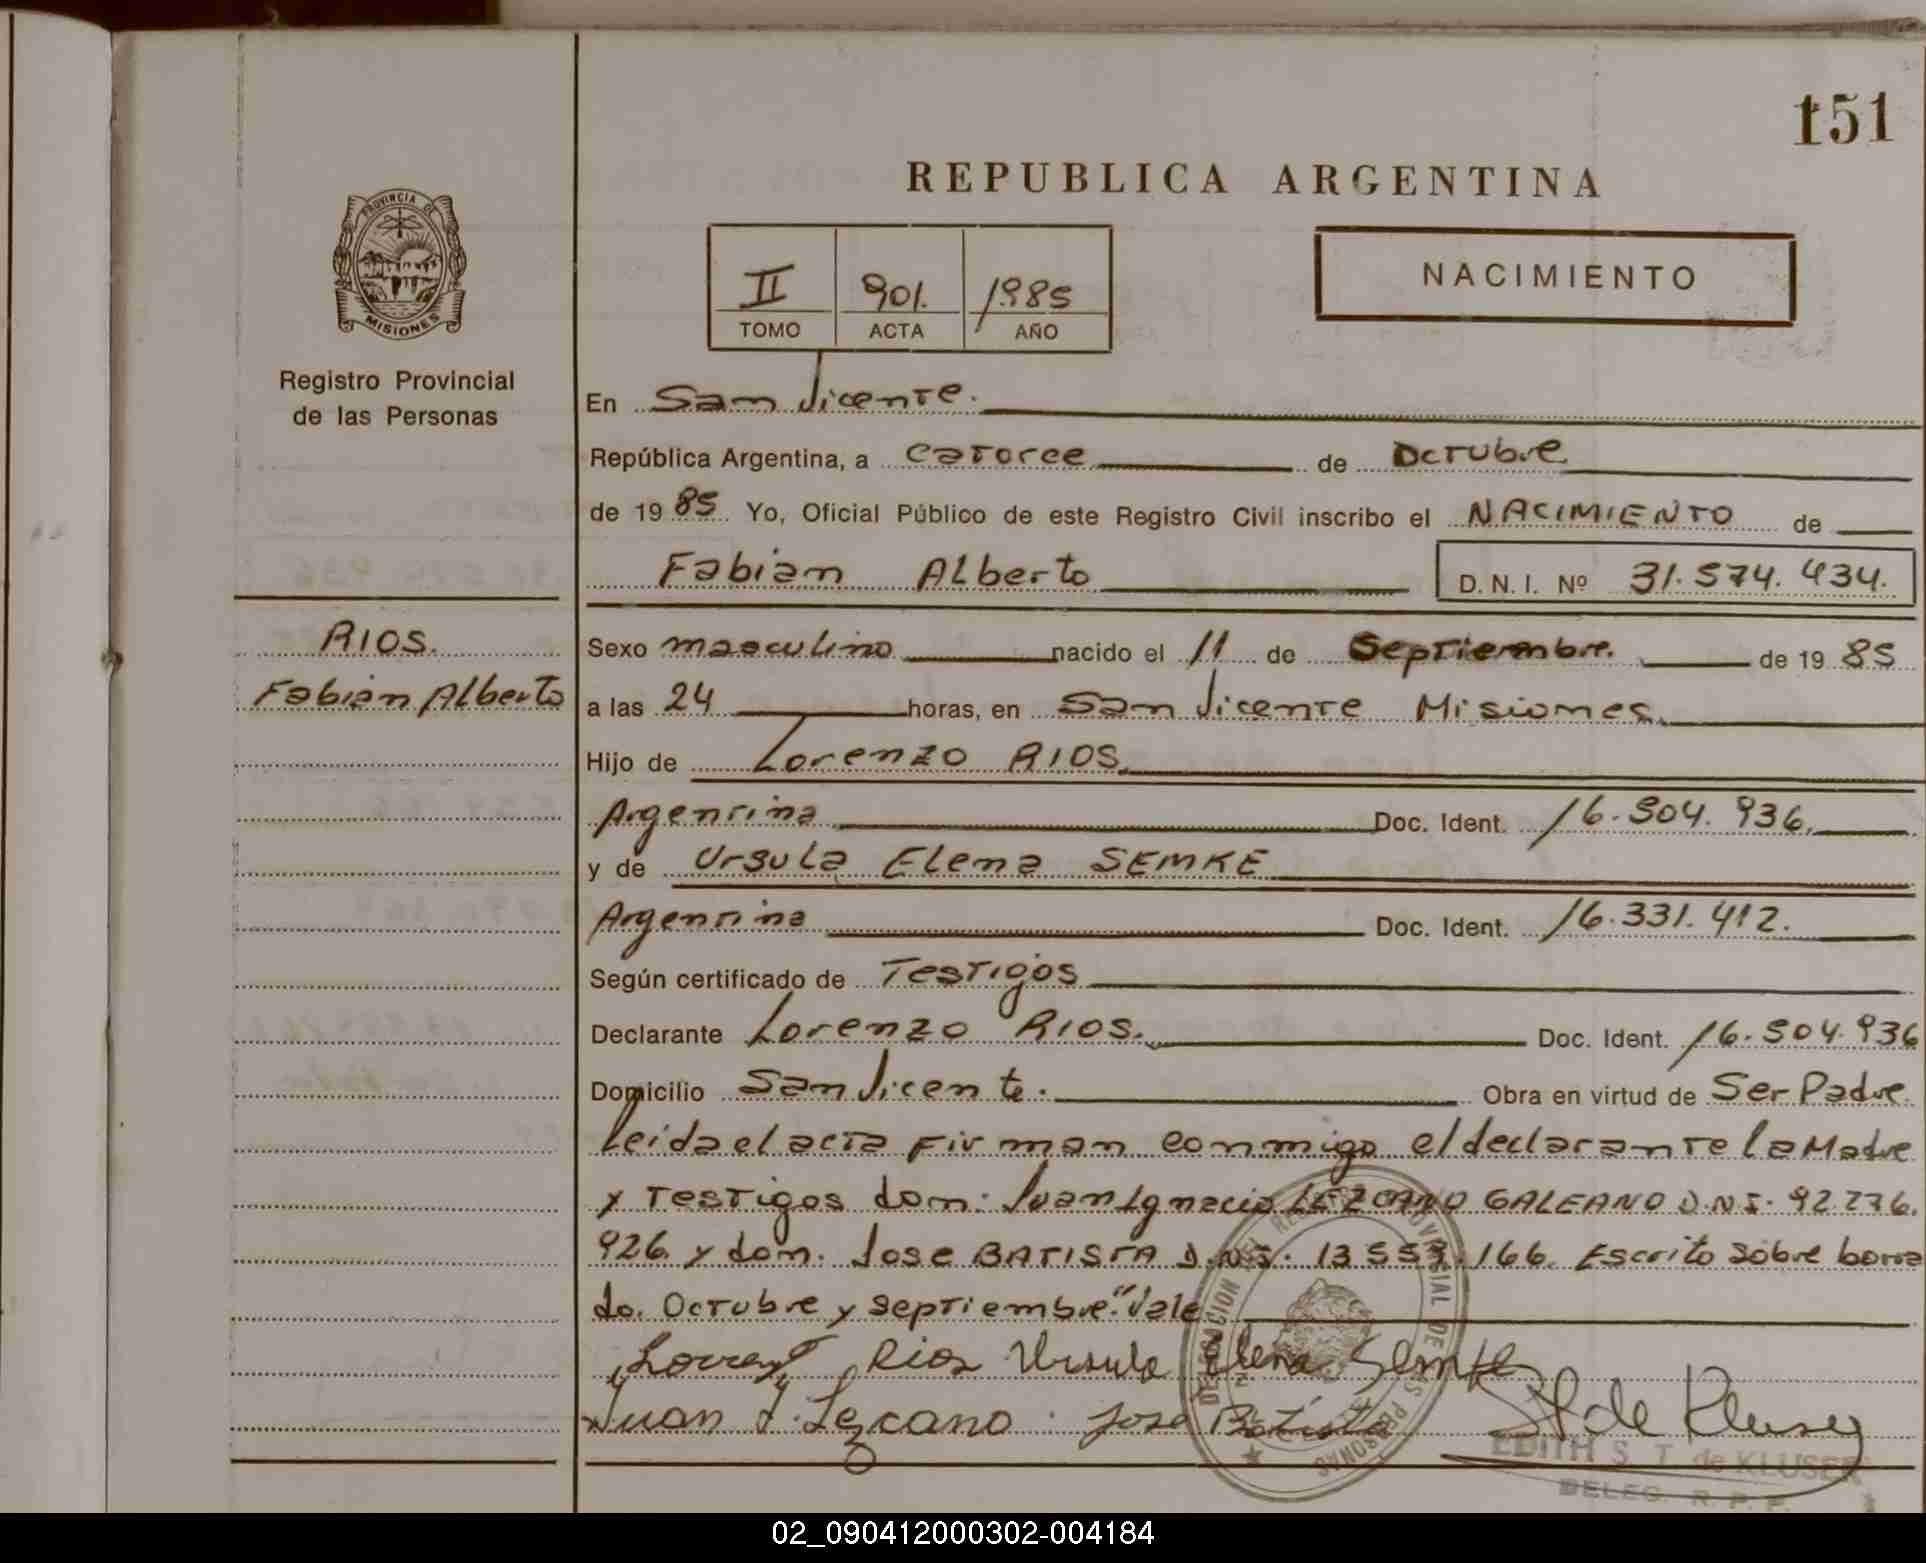 151
REPUBLICA ARGENTINA
PROVINCIA DE MISIONES
Registro Provincial
de las Personas
II 901. 1985
TOMO ACTA AÑO
NACIMIENTO
En San Vicente.
República Argentina, a catorce de Octubre
de 19 85 Yo, Oficial Público de este Registro Civil inscribo el NACIMIENTO de
Fabian Alberto D. N. I. Nº 31.574.434.
RIOS.
Fabian Alberto
Sexo masculino nacido el 11 de Septiembre. de 19 85
a las 24 horas, en San Vicente Misiones.
Hijo de Lorenzo RIOS.
Argentina Doc. Ident. 16.504.936.
y de Ursula Elena SEMKE
Argentina Doc. Ident. 16.331.412.
Según certificado de Testigos
Declarante Lorenzo RIOS. Doc. Ident. 16.504.936
Domicilio San Vicente. Obra en virtud de Ser Padre.
Leida el acta firman conmigo el declarante la Madre
y testigos don: Juan Ignacio LEZCANO GALEANO D.N.I. 92.276.
926. y don. Jose BATISTA D.N.I. 13.557.166. Escrito sobre borra
do. Octubre y septiembre." Vale
Lorenzo Rios Ursula Elena Semke
Juan I. Lezcano. jose Batista St de Kluser
DELEGACION DEL REGISTRO PROVINCIAL DE LAS PERSONAS
EDITH S. T. de KLUSER
DELEG. R. P. P.
02_090412000302-004184